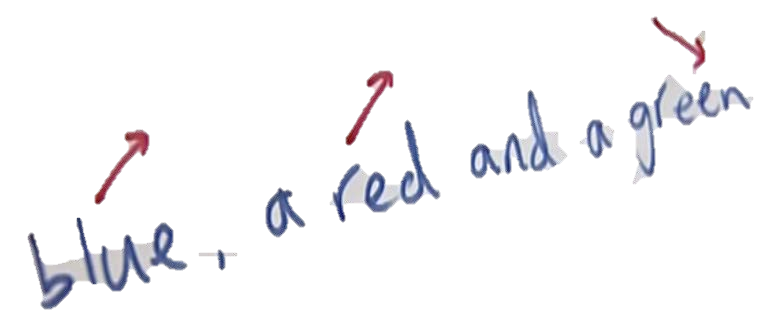 blue, a red and a green